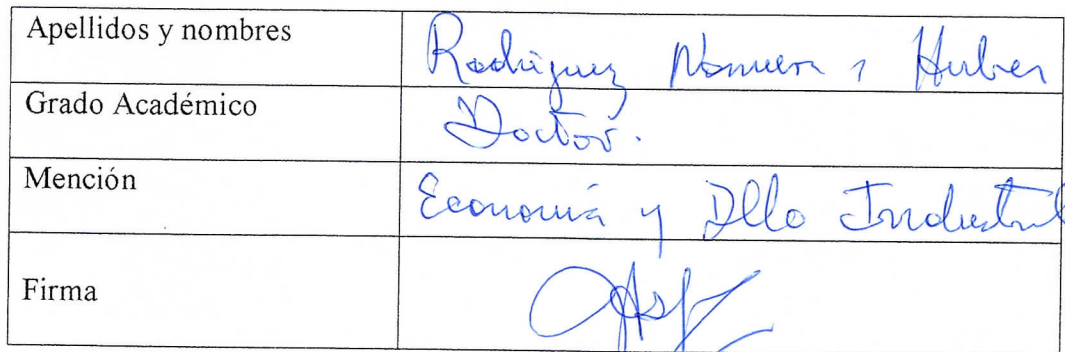 Apellidos y nombres Rodriguez Nomura, Huber
Grado Académico Doctor.
Mención Economía y Dllo Industrial
Firma